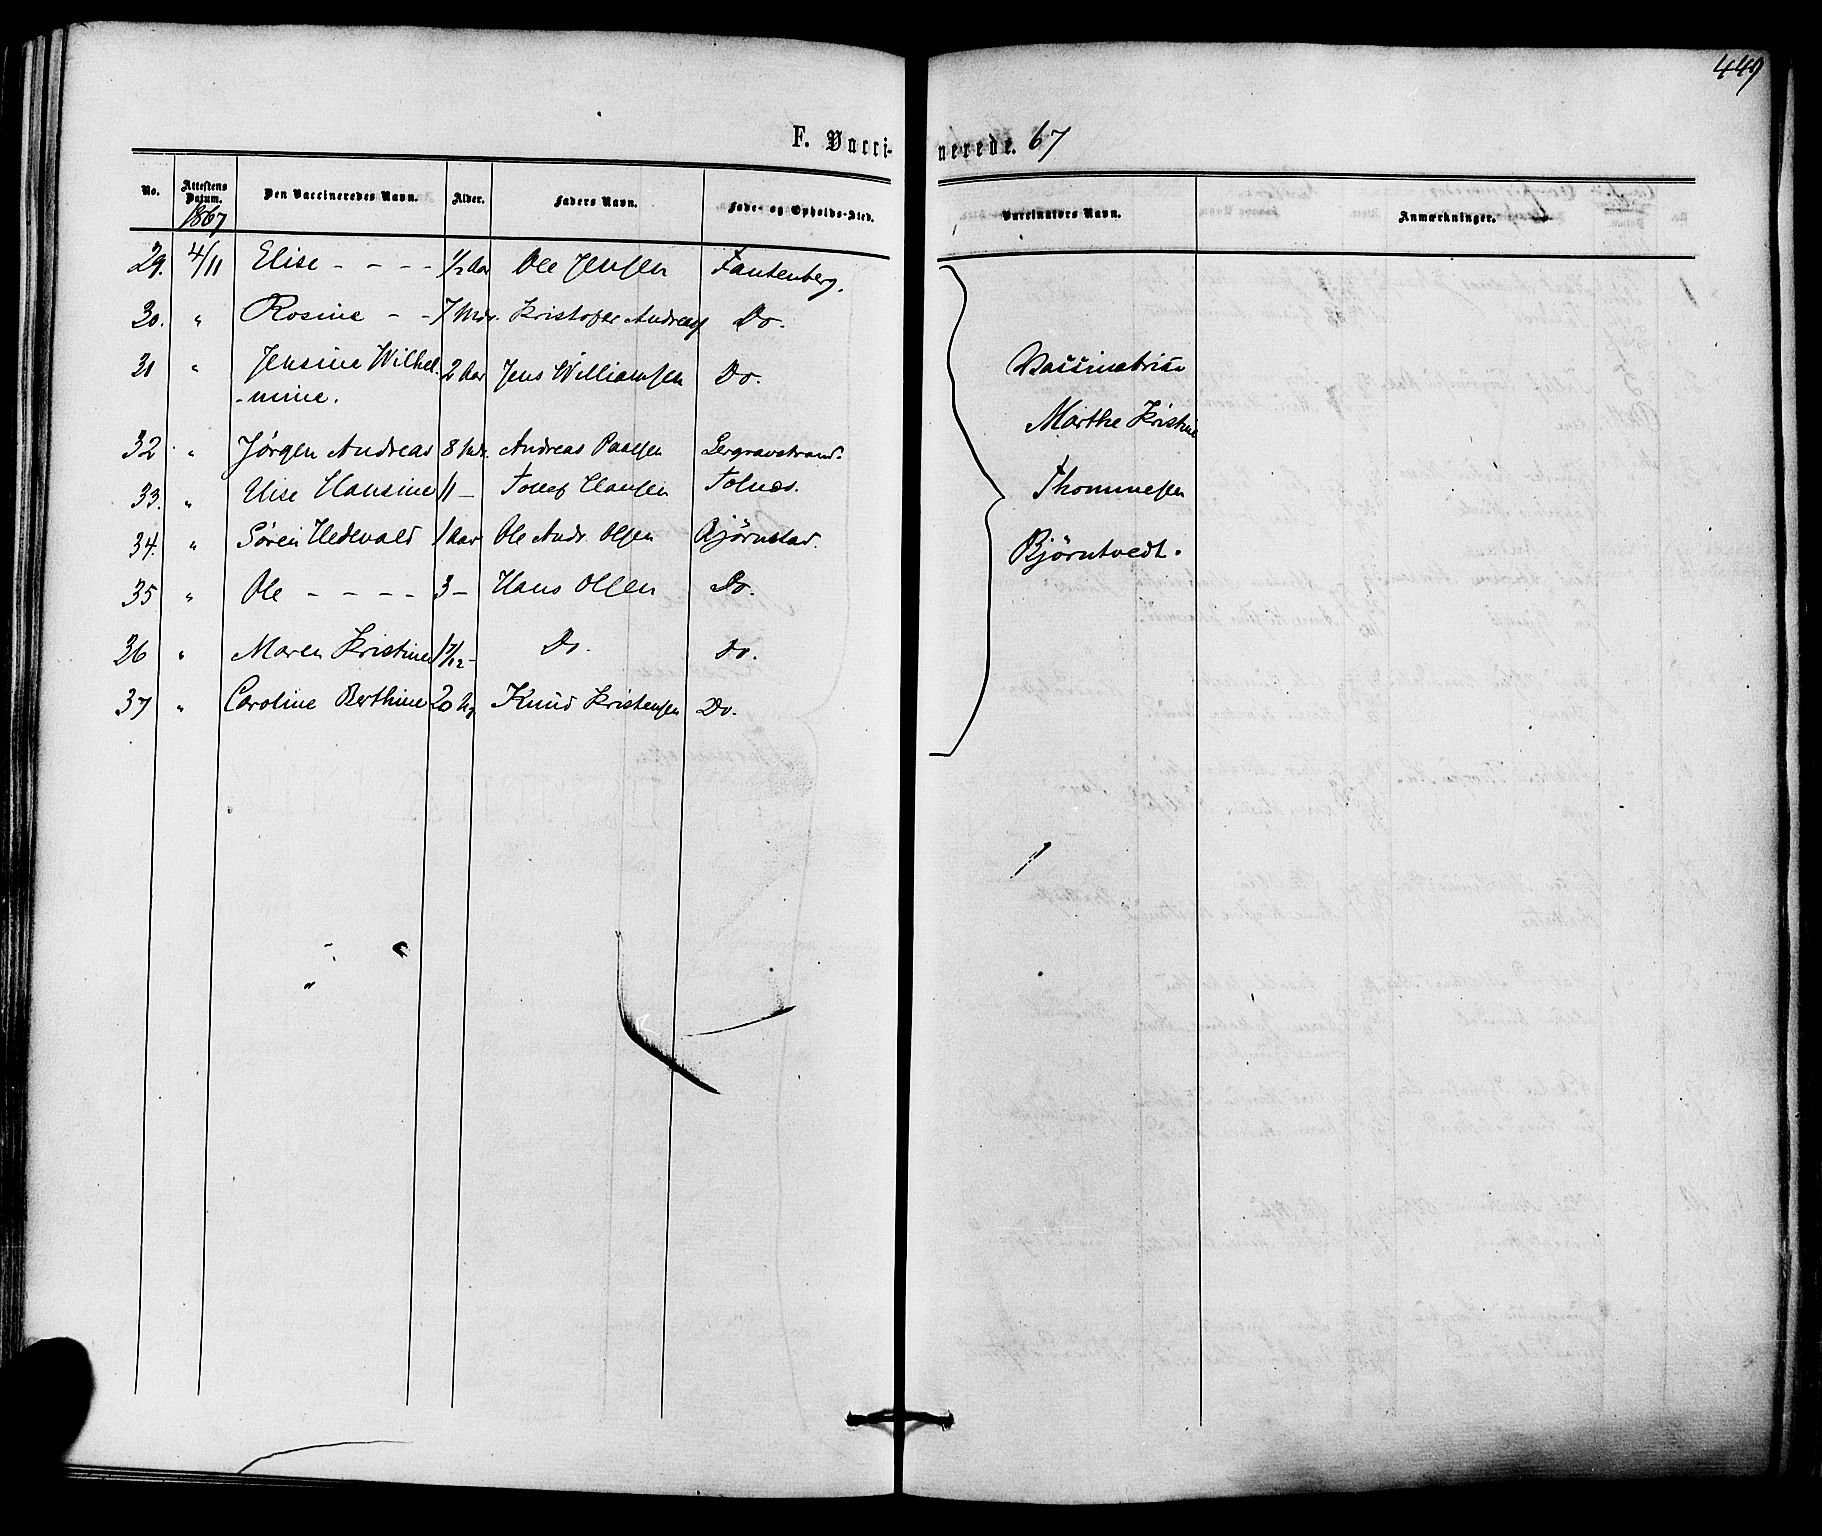 449
F. Vaccinerede. 67
No. Attestens Datum. Den Vaccineredes Navn. Alder. Faders Navn. Føde- og Opholds-Sted. Vaccinators Navn. Anmærkninger.
1867
29. 4/11 Elise - - - - 1/2 Aar Ole Jensen Fantenberg.
30. " Rosine - - 7 Mdr. Kristofer Andreas Do.
31 " Jensine Wilhel- 2 Aar Jens Williamsen Do.
-mine.
32 " Jørgen Andreas 8 Mdr. Andreas Paalsen Lergravstrand.
33. " Elise Hansine 11 - Hansen Tolnæs.
34. " Søren Hedevald 1 Aar Ole Andr. Olsen Bjørnstad.
35 " Ole - - - - 3 - Hans Olsen Do.
36 " Maren Kristine 1 7/12 - Do. Do.
37 " Caroline Berthine 20 Knud Kristensen Do.
Vaccinatrise
Marthe Kristine
Thommesen
Bjørntvedt.